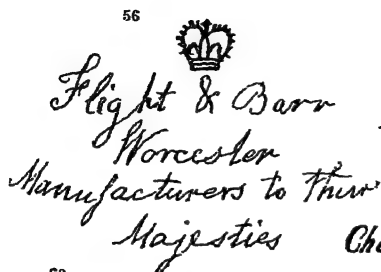 56
Flight & Barr
Worcester
Manufacturers to Their
Majesties
Che